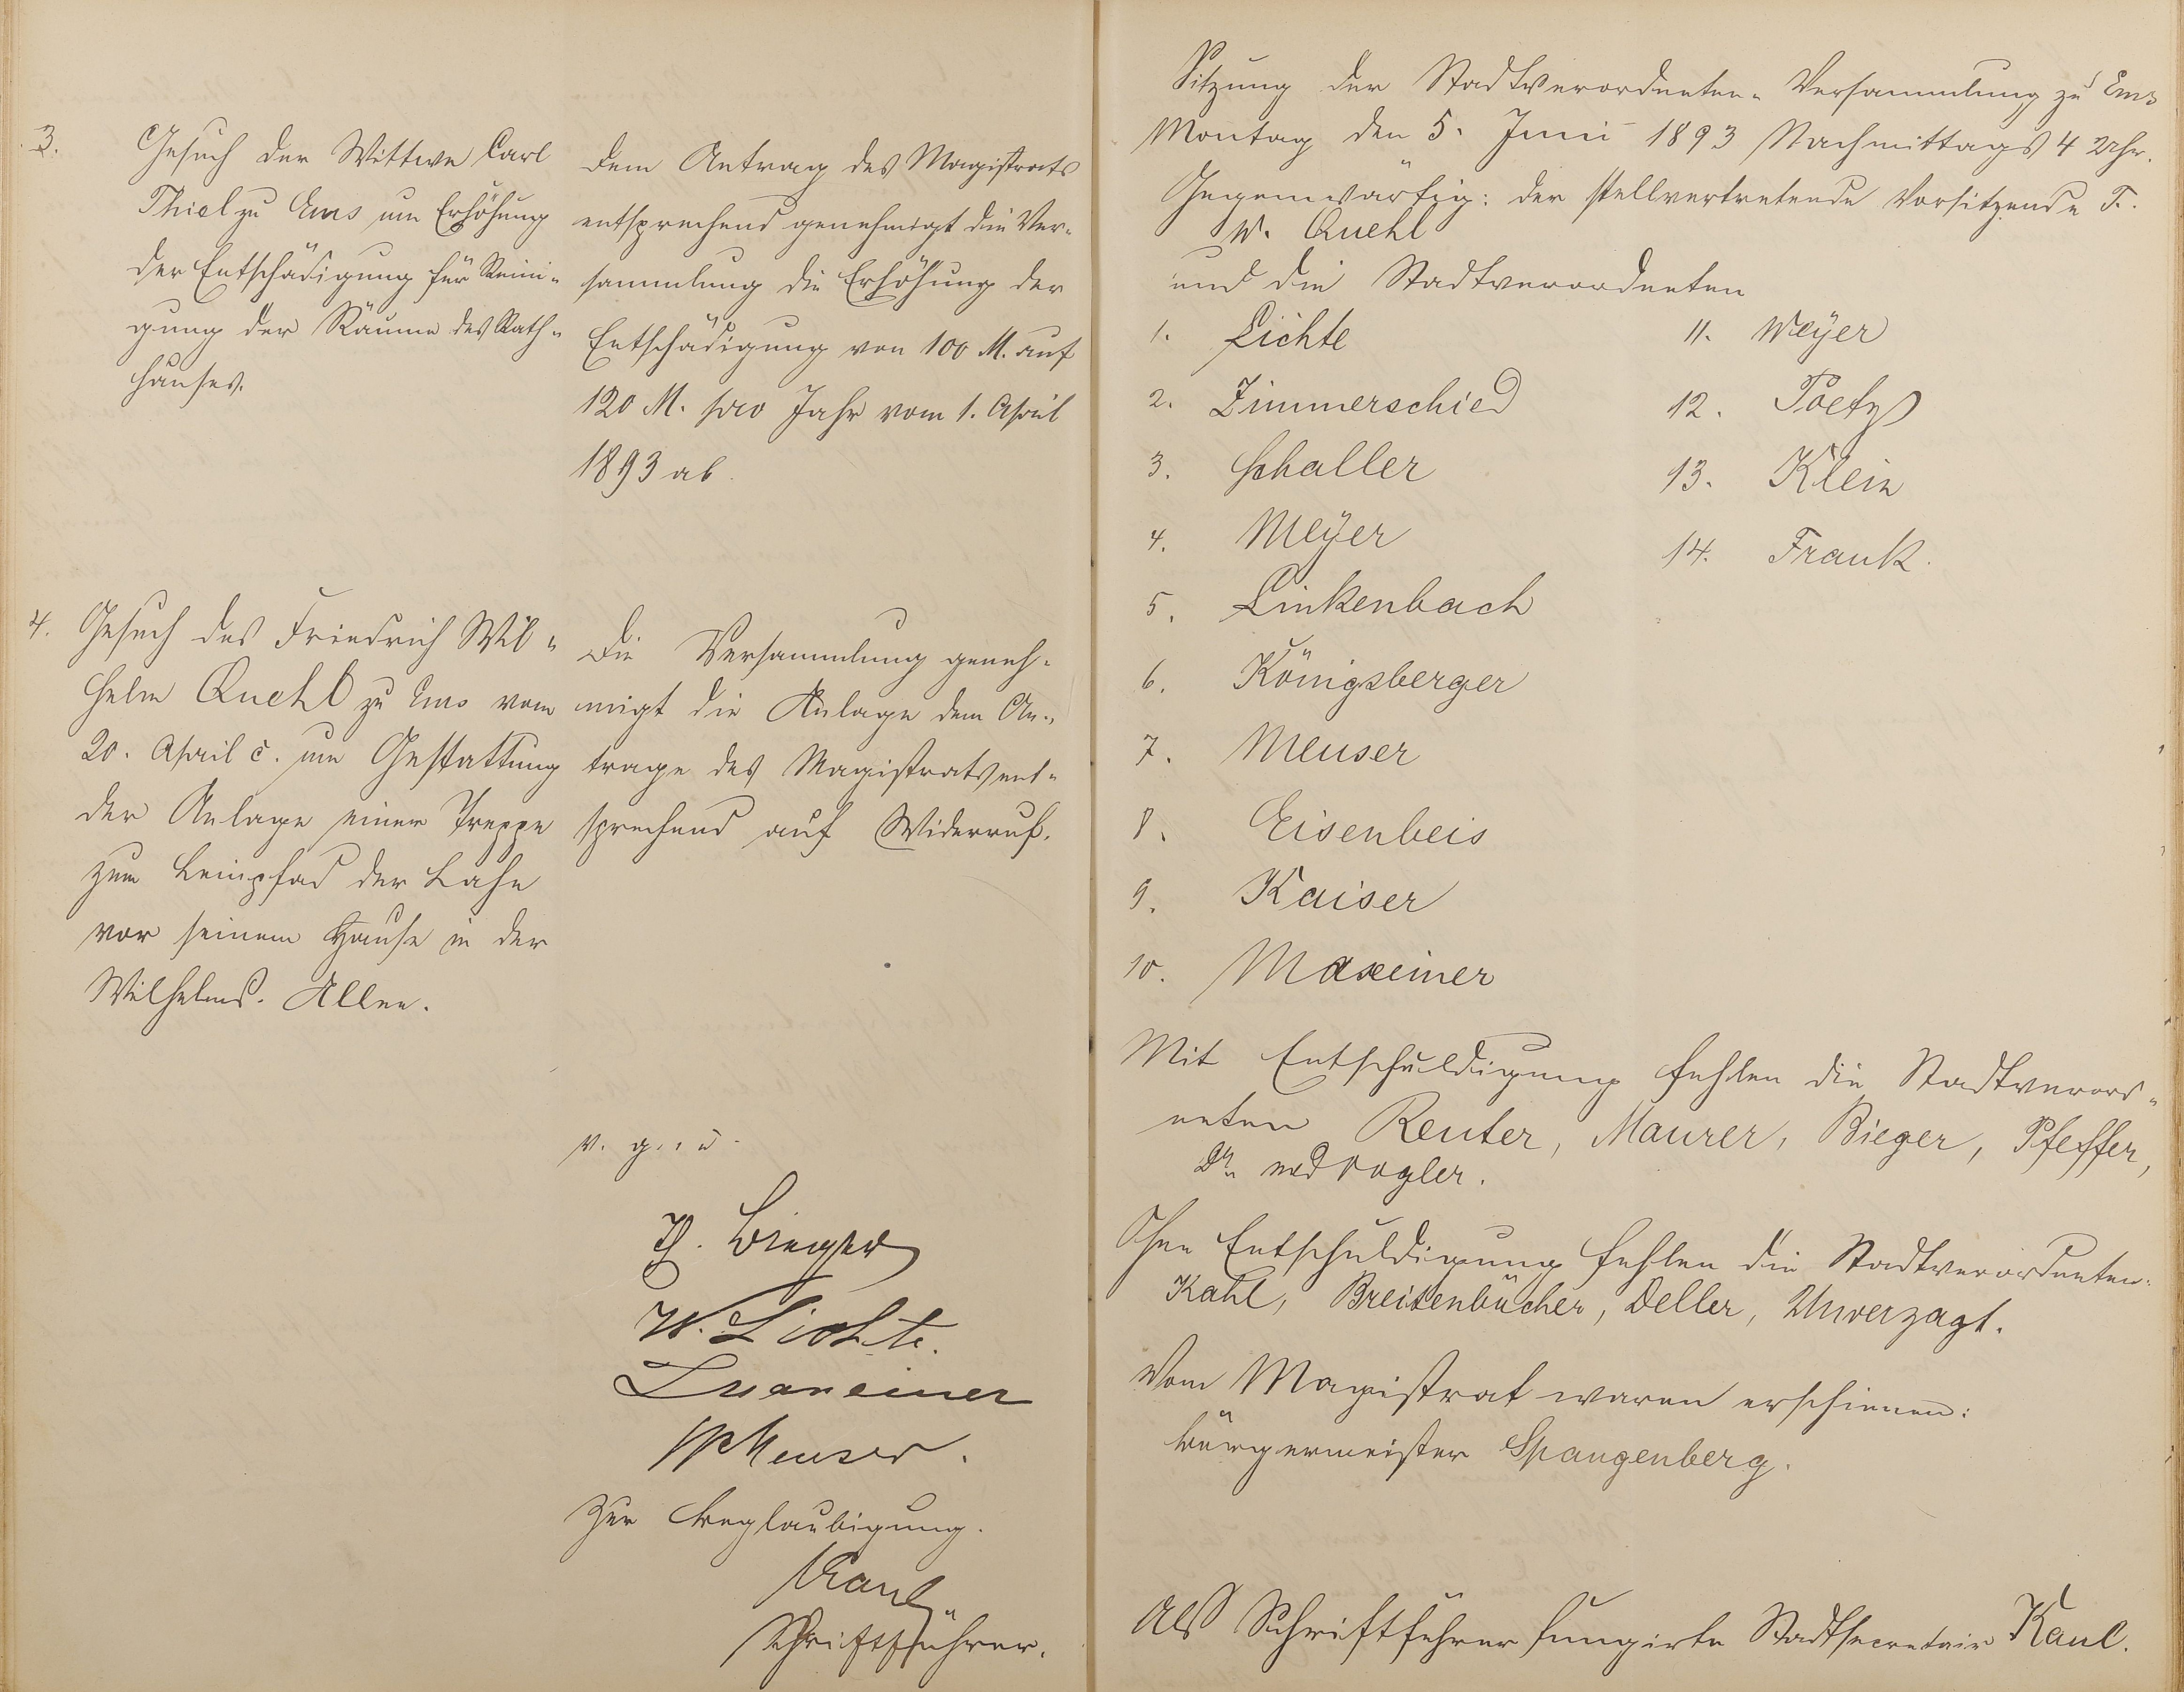 3.
Gesuch der Wittwe Carl
Thiel zu Ems um Erhöhung
der Entschädigung für Reini-
gung der Räume des Rath-
hauses.
Dem Antrag des Magistrats
entsprechend genehmigt die Ver-
sammlung die Erhöhung der
Entschädigung von 100 M. auf
120 M. pro Jahr vom 1. April
1893 ab.
4. Gesuch des Friedrich Wil-
helm Quehl zu Ems vom
20. April c. um Gestattung
der Anlage einer Treppe
zum Leinpfad der Lahn
vor seinem Hause in der
Wilhelms-Allee.
Die Versammlung geneh-
migt die Anlage dem An-
trage des Magistrats ent-
sprechend auf Widerruf.
v. g. u.
Bieger
W. Lichte.
Maxeiner
Meuser.
Zur Beglaubigung.
Kaul
Schriftführer.
Sitzung der Stadtverordneten-Versammlung zu Ems
Montag den 5. Juni 1893 Nachmittags 4 Uhr.
Gegenwärtig: der stellvertretende Vorsitzende F.
W. Quehl
und die Stadtverordneten
1. Lichte
2. Zimmerschied
3. Schaller
4. Meyer
5. Linkenbach
6. Königsberger
7. Meuser
8. Eisenbeis
9. Kaiser
10. Maxeiner
11. Weyer
12. Poetz
13. Klein
14. Frank.
Mit Entschuldigung fehlen die Stadtverord-
neten Reuter, Maurer, Bieger, Pfeffer,
Dr. med Vogler.
Ohne Entschuldigung fehlen die Stadtverordneten:
Kahl, Breitenbücher, Deller, Unverzagt.
Vom Magistrat waren erschienen:
Bürgermeister Spangenberg.
Als Schriftführer fungirte Stadtsecretair Kaul.